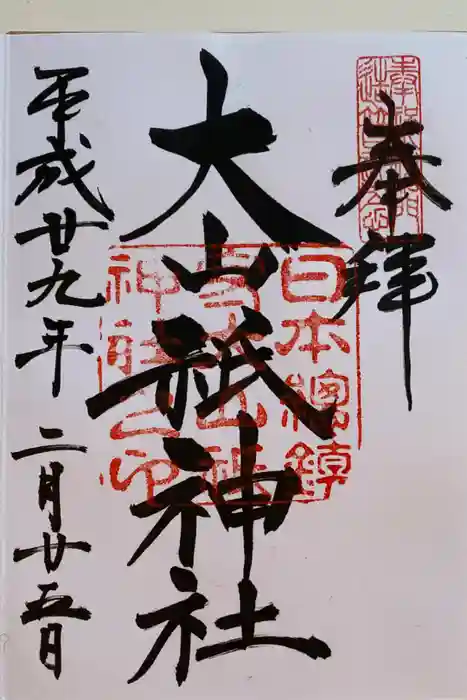 奉拝
大山祇神社
平成廿九年二月廿五日
日本總鎮
神社之印